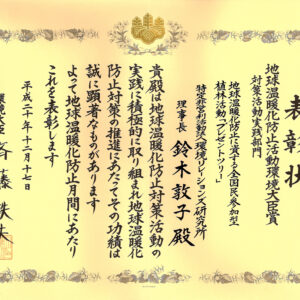 表彰状
地球温暖化防止活動環境大臣賞
対策活動実践部門
地球温暖化防止に資する全国民参加型
植林活動「プレゼントツリー」
特定非営利活動法人環境リレーションズ研究所
理事長 鈴木敦子殿
貴殿は地球温暖化防止対策活動の
実践に積極的に取り組まれ地球温暖化
防止対策の推進にあたってその功績は
誠に顕著なものがあります
よって地球温暖化防止月間にあたり
これを表彰します
平成二十年十二月十七日
環境大臣 斉藤鉄夫